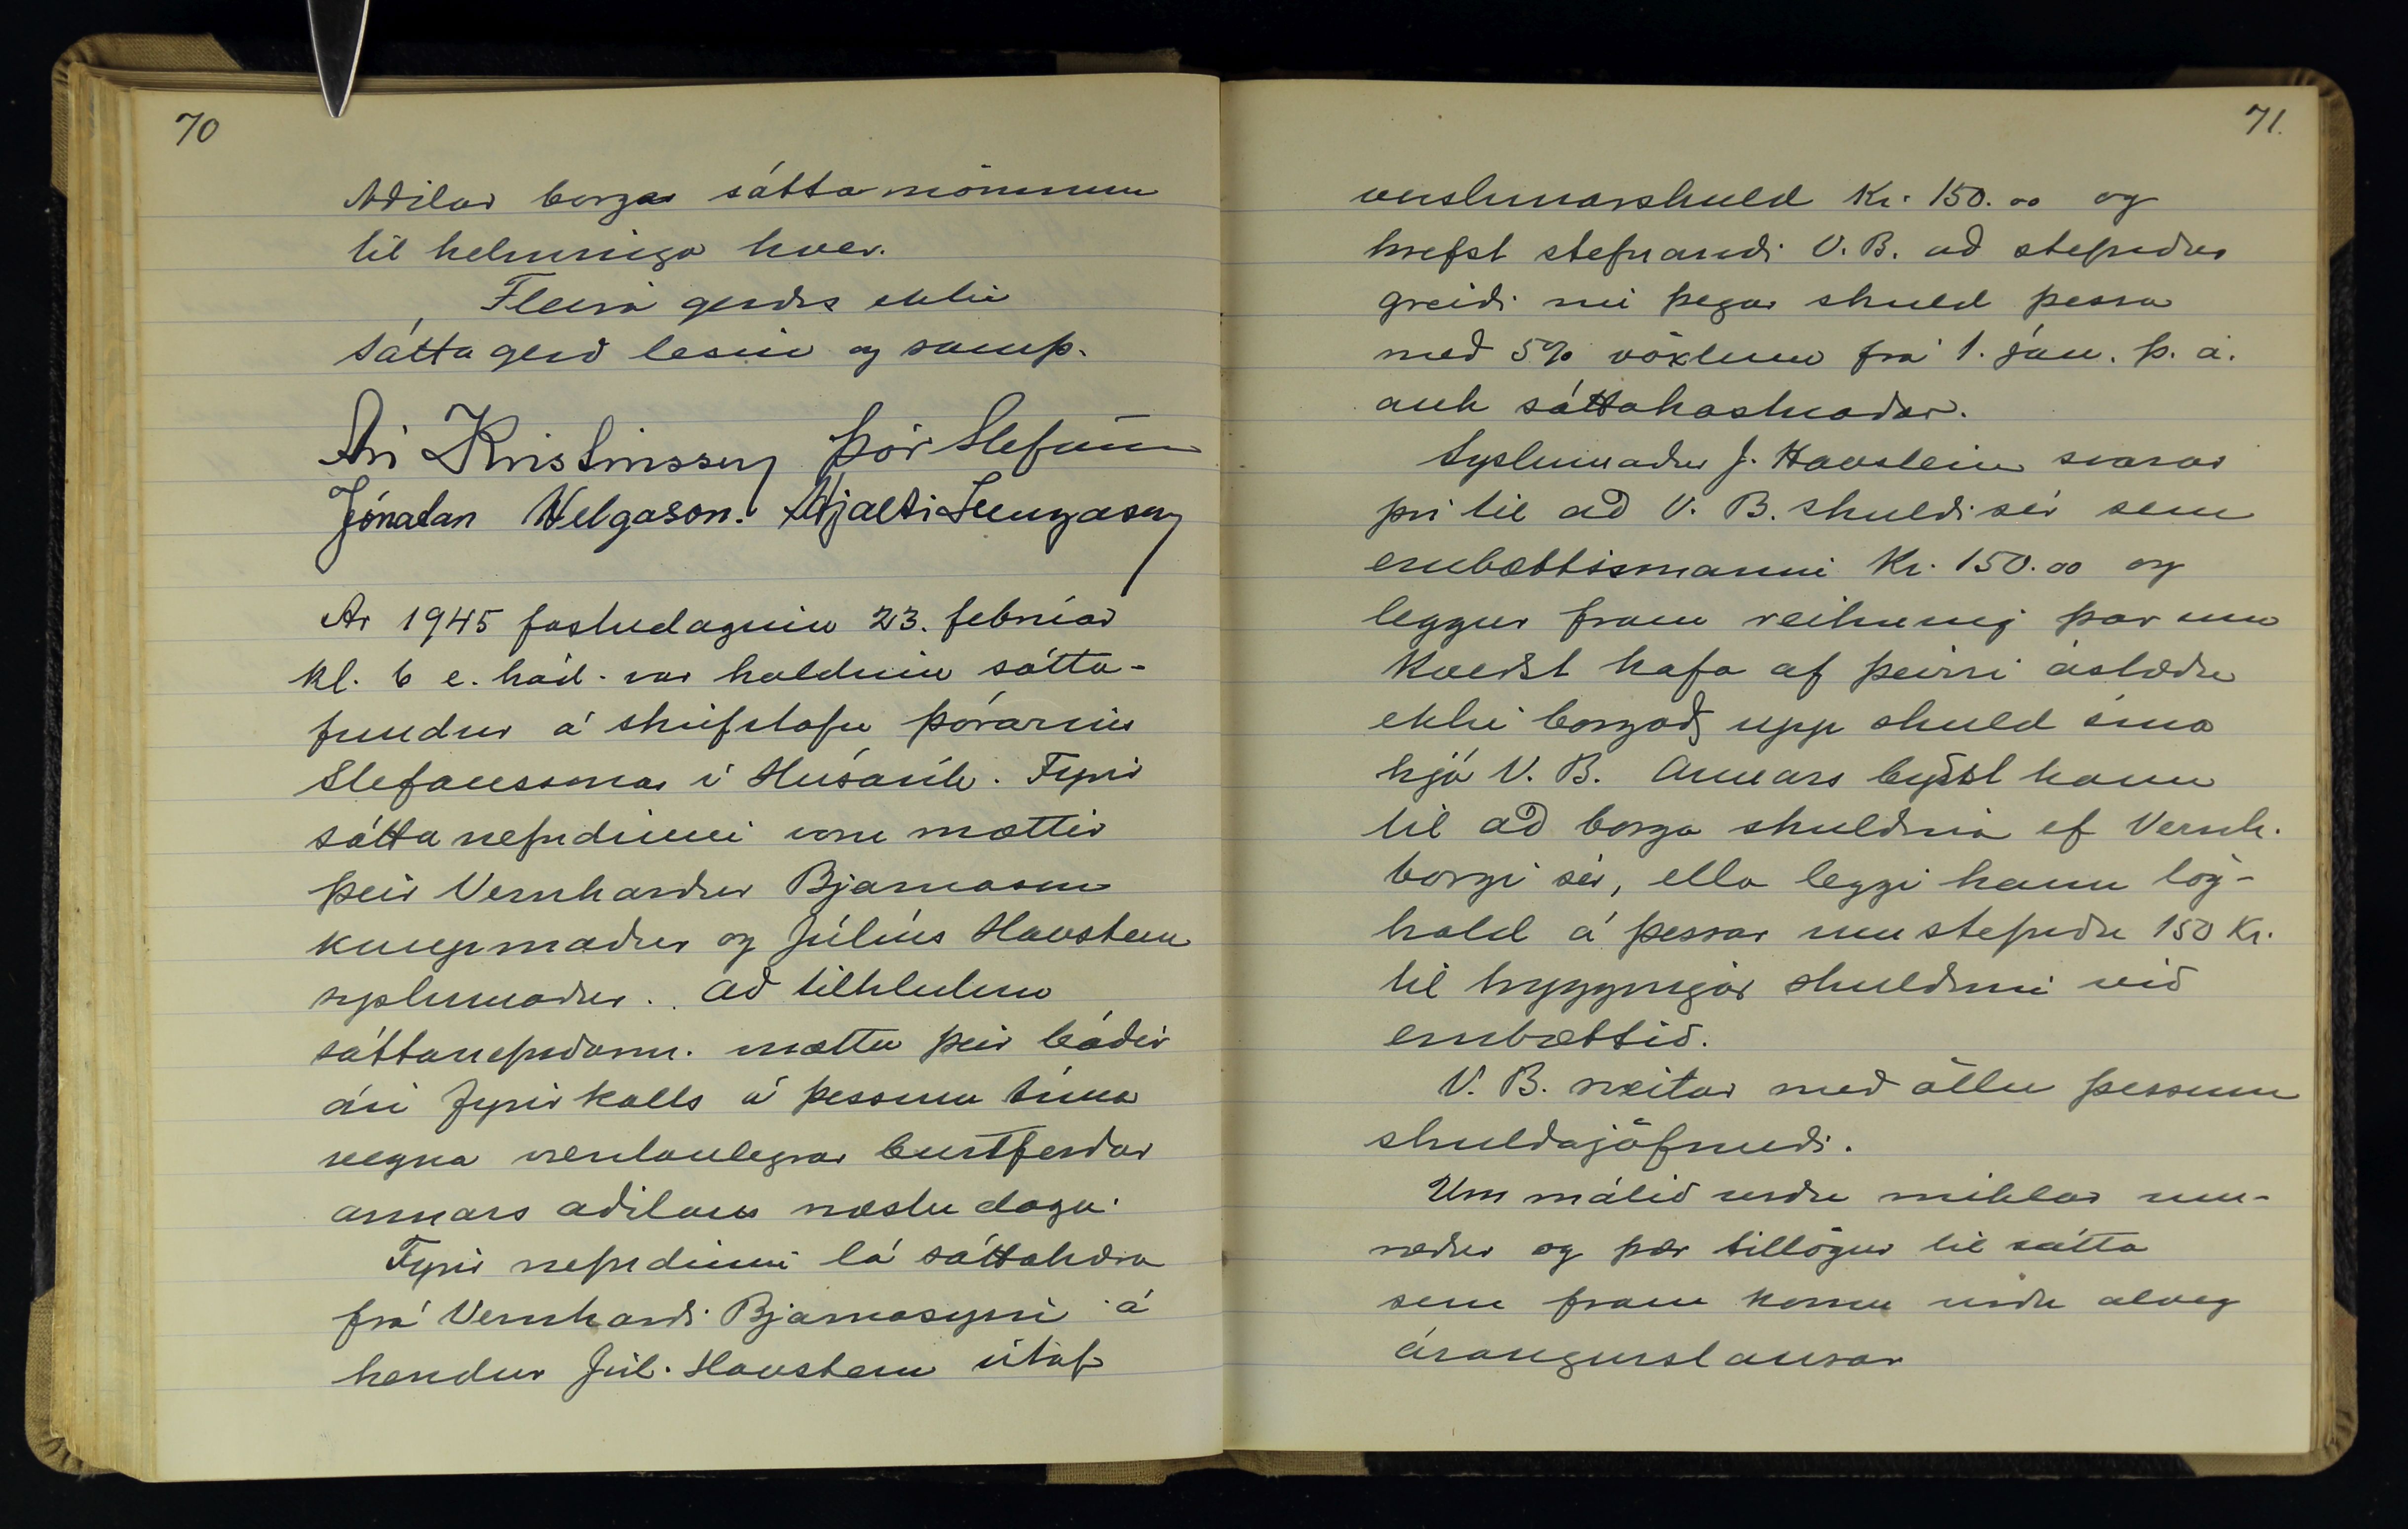 70
Aðilar borga sáttamönnum
til helminga hver.
Fleira gerðs ekki
Sáttagerð lesin og samþ.
Ari Kristinsson Þór Stefánss
Jónatan Helgason. Hjalti Illugason
Ár 1945 föstudaginn 23. febrúar
kl. 6 e. hád. var haldinn sátta-
fundur á skrifstofu Þórarins
Stefánssonar í Húsavík. Fyrir
sáttanefndinni voru mættir
þeir Vernharður Bjarnason
kaupmaður og Júlíus Havsteen
sýslumaður. Að tilhlutun
sáttanefndarm. mættu þeir báðir
án fyrirkalls á þessum tíma
vegna væntanlegrar burtferðar
annars aðilans næstu daga.
Fyrir nefndinni lá sáttakæra
frá Vernharði Bjarnasyni á
hendur Júl. Havsteen útaf
71.
verslunarskuld kr. 150.00 og
krefst stefnandi V.B. að stefndur
greiði nú þegar skuld þessa
með 5% vöxtum frá 1. jan. þ. á.
auk sáttakostnaðar.
Sýslumaður J. Havsteen svarar
því til að V. B. skuldi sér sem
embættismanni kr. 150.00 og
leggur fram reikning þar um
Kveðst hafa af þeirri ástæðu
ekki borgað upp skuld sína
hjá V. B. Annars býðst hann
til að borga skuldina ef Vernh.
borgi sér, ella leggi hann lög-
hald á þessar umstefndu 150 kr.
til tryggingar skuldinni við
embættið.
V. B. neitar með öllu þessum
skuldajöfnuði.
Um málið urðu miklar um-
ræður og þær tillögur til sátta
sem fram komu urðu alveg
árangurslausar